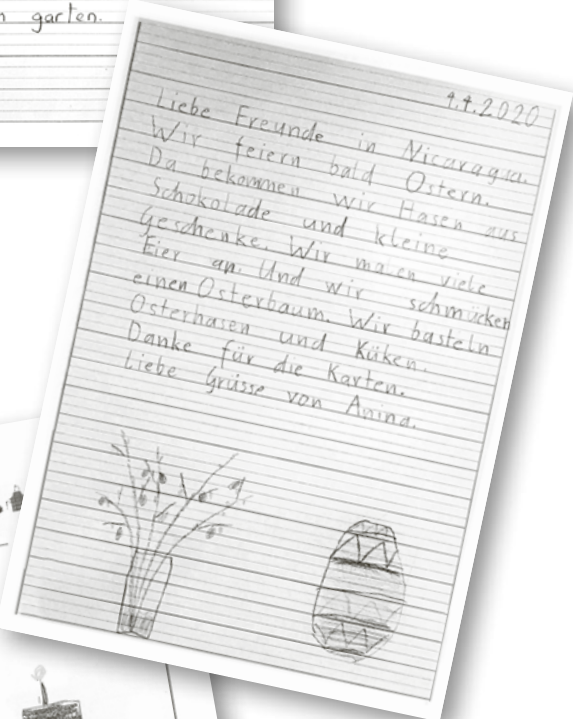 garten.
4.4.2020
Liebe Freunde in Nicaragua.
Wir feiern bald Ostern.
Da bekommen wir Hasen aus
Schokolade und kleine
Geschenke. Wir malen viele
Eier an. Und wir schmücken
einen Osterbaum. Wir basteln
Osterhasen und Küken.
Danke für die Karten.
Liebe Grüsse von Anina.